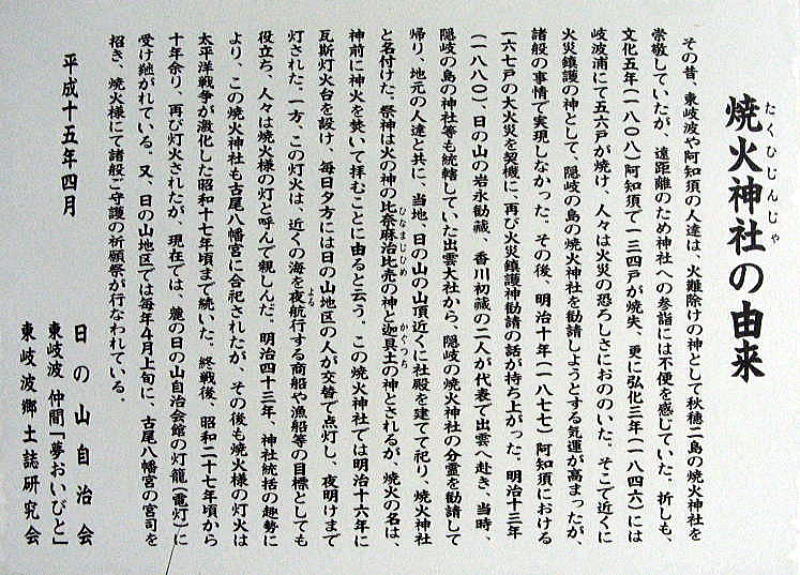 焼火神社の由来
たくひじんじゃ
その昔、東岐波や阿知須の人達は、火難除けの神として秋穂二島の焼火神社を
崇敬していたが、遠距離のため神社への参詣には不便を感じていた。折しも、
文化五年(一八〇八)阿知須で一三四戸が焼失、更に弘化三年(一八四六)には
岐波浦にて五六戸が焼け、人々は火災の恐ろしさにおののいた。そこで近くに
火災鎮護の神として、隠岐の島の焼火神社を勧請しようとする気運が高まったが、
諸般の事情で実現しなかった。その後、明治十年(一八七七)阿知須における
一六七戸の大火災を契機に、再び火災鎮護神勧請の話が持ち上がった。明治十三年
(一八八〇)、日の山の岩永勧蔵、香川初蔵の二人が代表で出雲へ赴き、当時、
隠岐の島の神社等も統轄していた出雲大社から、隠岐の焼火神社の分霊を勧請して
帰り、地元の人達と共に、当地、日の山の山頂近くに社殿を建てて祀り、焼火神社
と名付けた。祭神は火の神の比奈麻治比売の神と迦具土の神とされるが、焼火の名は、
ひなまじひめ
かぐつち
神前に神火を焚いて拝むことに由ると云う。この焼火神社では明治十六年に
瓦斯灯火台を設け、毎日夕方には日の山地区の人が交替で点灯し、夜明けまで
灯された。一方、この灯火は、近くの海を夜航行する商船や漁船等の目標としても
よる
役立ち、人々は焼火様の灯と呼んで親しんだ。明治四十三年、神社統括の趣勢に
より、この焼火神社も古尾八幡宮に合祀されたが、その後も焼火様の灯火は
太平洋戦争が激化した昭和十七年頃まで続いた。終戦後、昭和二十七年頃から
十年余り、再び灯火されたが、現在では、麓の日の山自治会館の灯籠(電灯)に
受け継がれている。又、日の山地区では毎年4月上旬に、古尾八幡宮の宮司を
招き、焼火様にて諸般ご守護の祈願祭が行なわれている。
平成十五年四月
日の山自治会
東岐波 仲間「夢おいびと」
東岐波郷土誌研究会